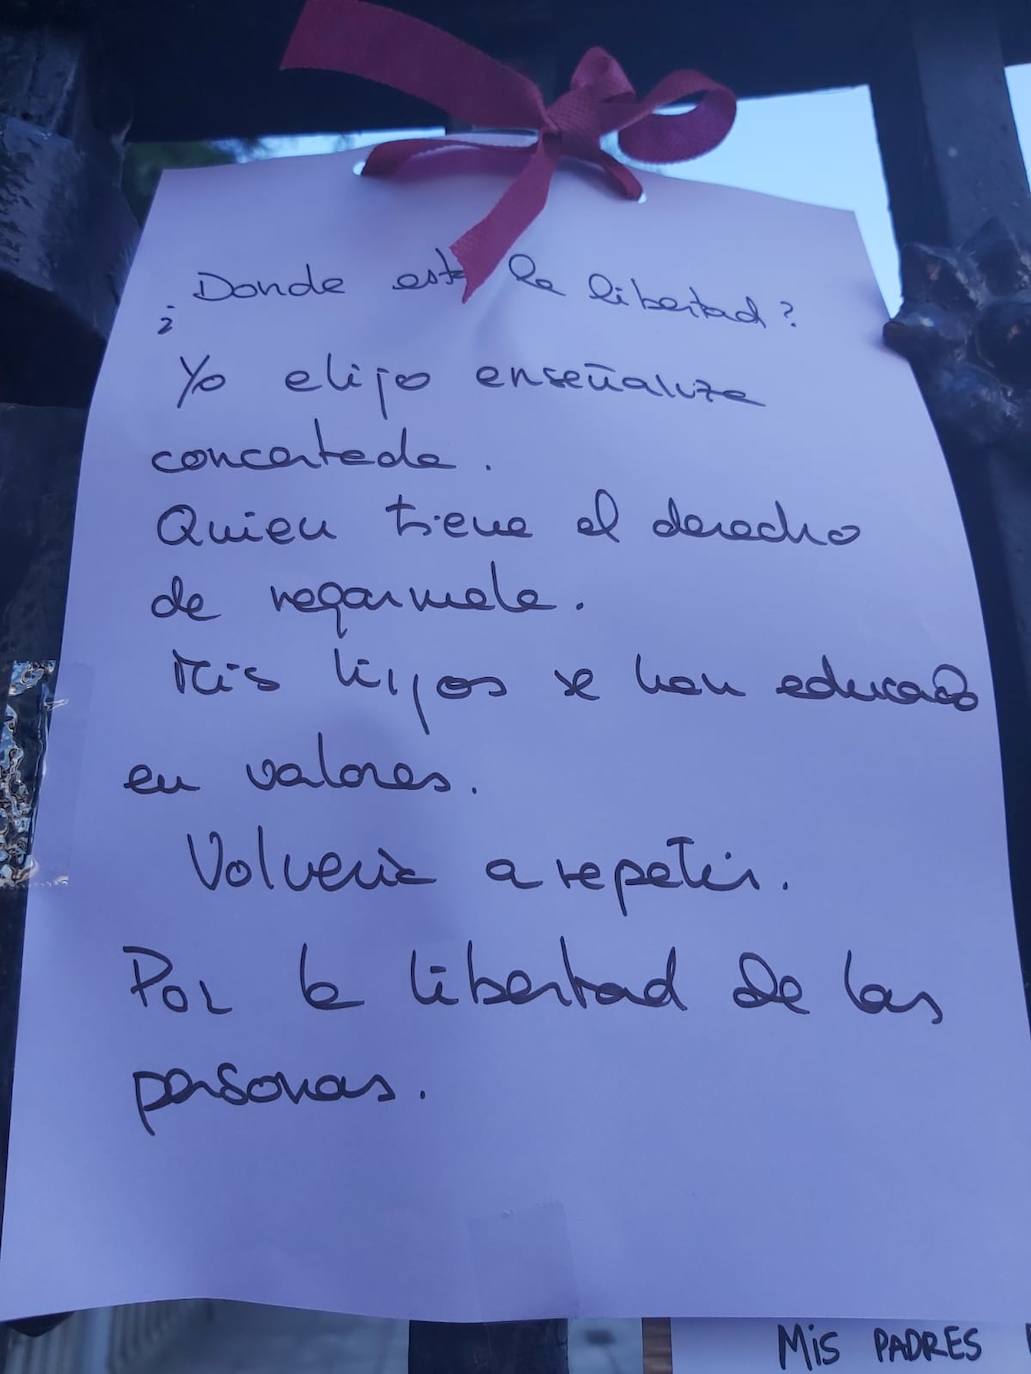 ¿Donde esta la libertad?
Yo elijo enseñanza
concertada.
Quien tiene el derecho
de negarmela.
Mis hijos se han educado
en valores.
Volveria a repetir.
Por la libertad de las
personas.
MIS PADRES